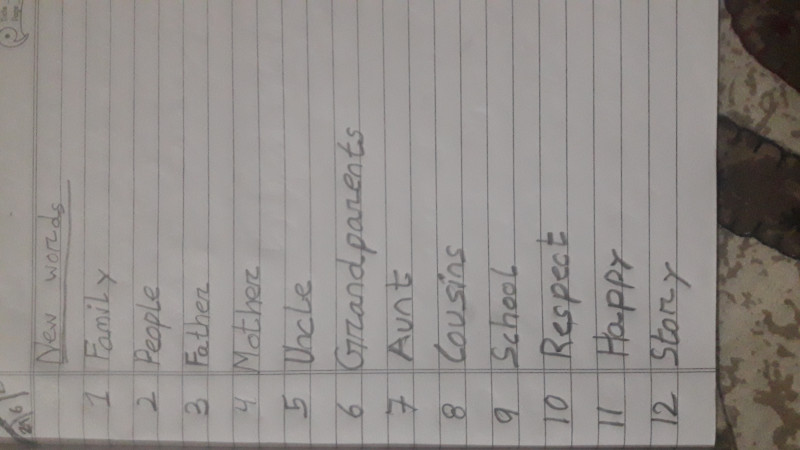 New words
1 Family
2 People
3 Father
4 Mother
5 Uncle
6 Grandparents
7 Aunt
8 Cousins
9 School
10 Respect
11 Happy
12 Story